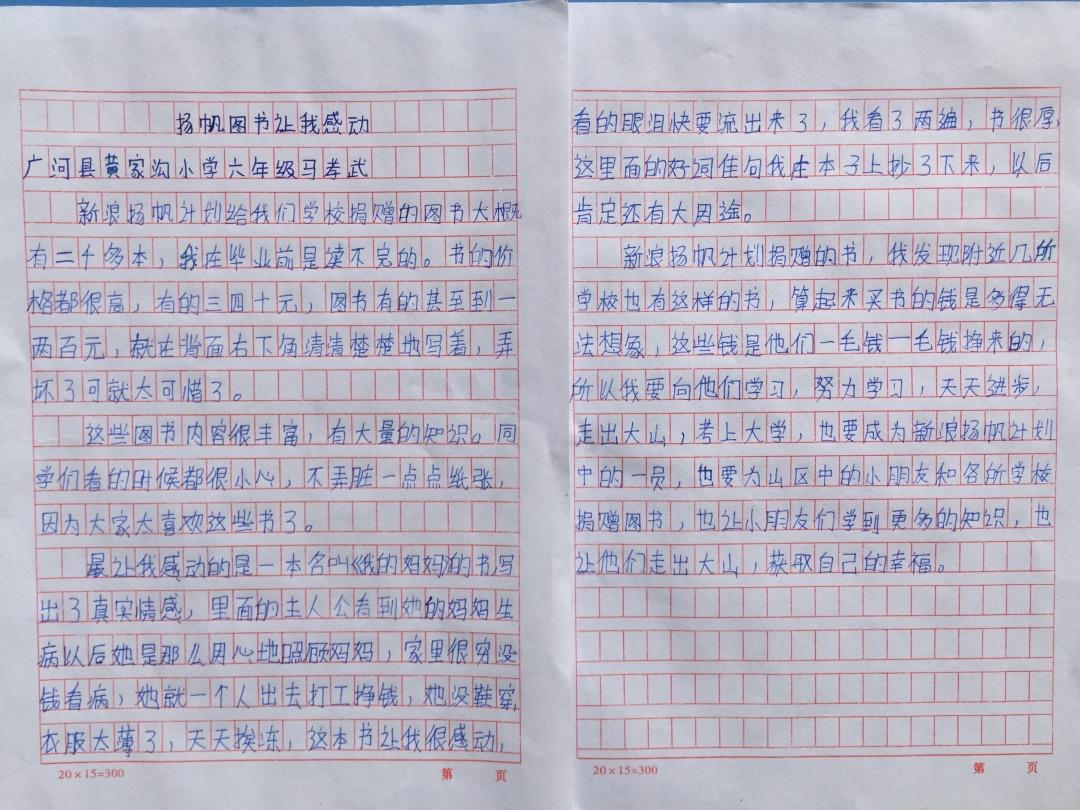 扬帆图书让我感动
广河县黄家沟小学六年级马孝武
新浪扬帆计划给我们学校捐赠的图书大概
有二千多本，我在毕业前是读不完的。书的价
格都很高，有的三四十元，图书有的甚至到一
两百元，就在背面右下角清清楚楚地写着，弄
坏了可就太可惜了。
这些图书内容很丰富，有大量的知识。同
学们看的时候都很小心，不弄脏一点点纸张，
因为大家太喜欢这些书了。
最让我感动的是一本名叫《我的妈妈》的书,写
出了真实情感，里面的主人公看到她的妈妈生
病以后她是那么用心地照顾妈妈，家里很穷没
钱看病，她就一个人出去打工挣钱，她没鞋穿,
衣服太薄了，天天挨冻，这本书让我很感动，
看的眼泪快要流出来了，我看了两遍，书很厚,
这里面的好词佳句我在本子上抄了下来，以后
肯定还有大用途。
新浪扬帆计划捐赠的书，我发现附近几所
学校也有这样的书，算起来买书的钱是多得无
法想象，这些钱是他们一毛钱一毛钱挣来的，
所以我要向他们学习，努力学习，天天进步，
走出大山，考上大学，也要成为新浪扬帆计划
中的一员，也要为山区中的小朋友和各所学校
捐赠图书，也让小朋友们学到更多的知识，也
让他们走出大山，获取自己的幸福。
20×15=300
第 页
20×15=300
第 页